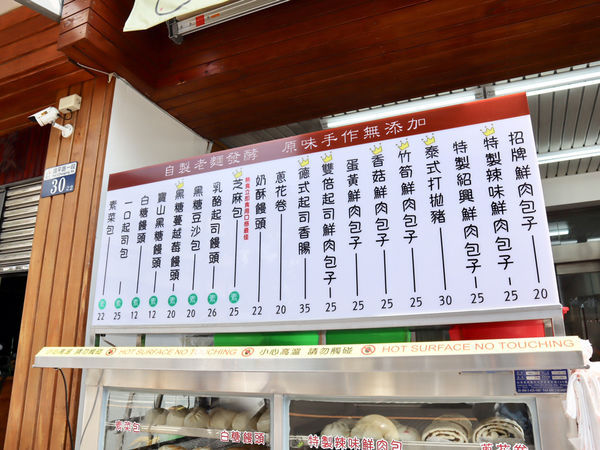 自製老麵發酵 原味手作無添加
招牌鮮肉包子 20
特製辣味鮮肉包子 25
特製紹興鮮肉包子 25
泰式打拋豬 30
竹筍鮮肉包子 25
香菇鮮肉包子 25
蛋黃鮮肉包子 25
雙倍起司鮮肉包子 25
德式起司香腸 35
蔥花卷 20
奶酥饅頭 22
芝麻包 素 25
乳酪起司饅頭 素 26
黑糖豆沙包 素 20
黑糖蔓越莓饅頭 素 20
寶山黑糖饅頭 素 12
白糖饅頭 素 12
一口起司包 素 25
素菜包 素 22
30
小心高溫 請勿觸碰 HOT SURFACE NO TOUCHING 小心高溫 請勿觸碰 HOT SURFACE NO TOUCHING
素菜包
白糖饅頭
特製辣味鮮肉包
蔥花卷